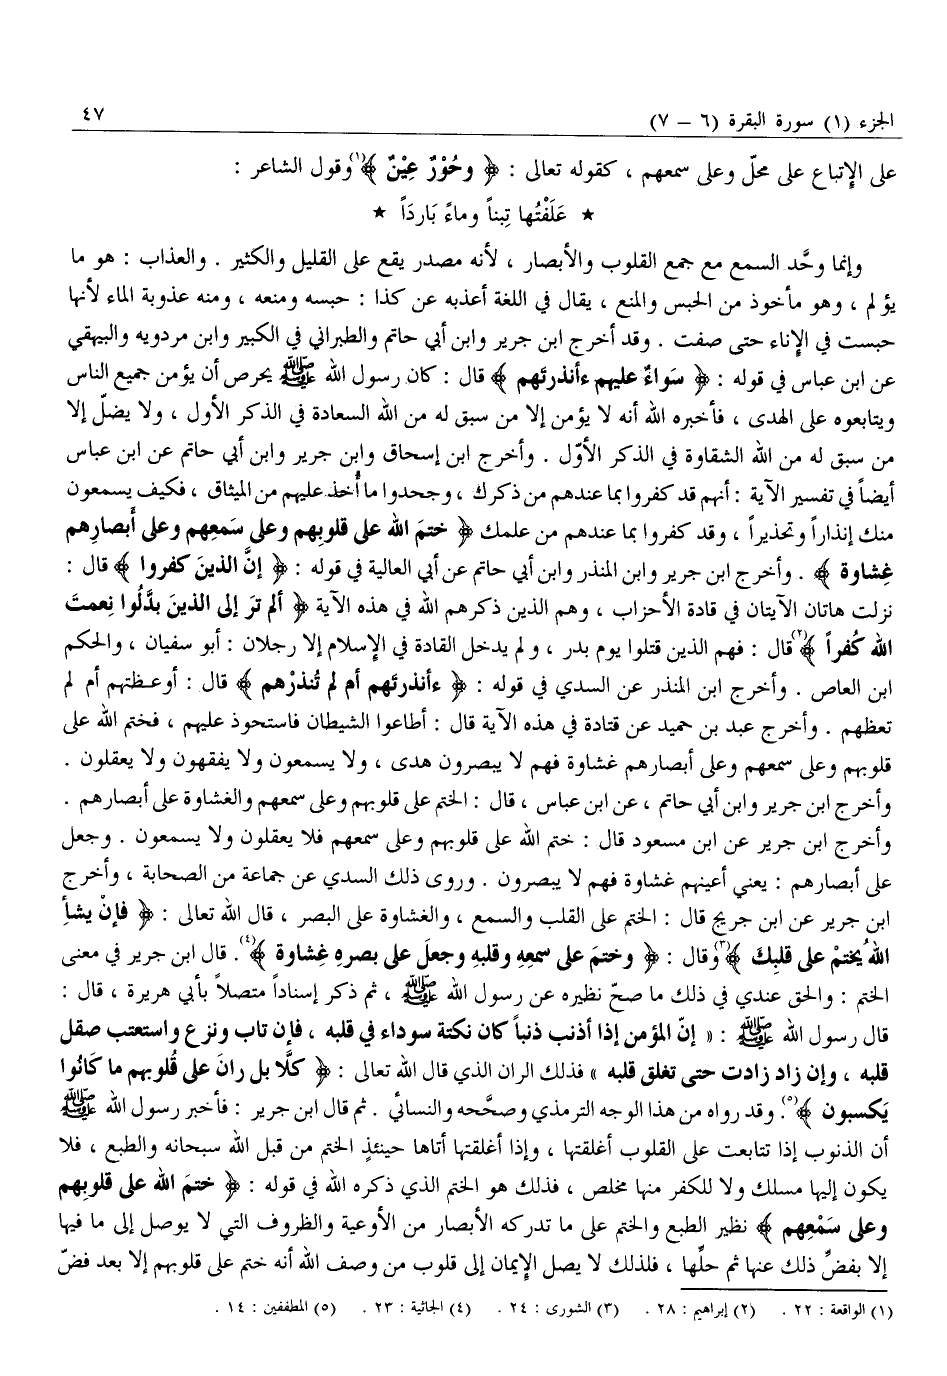 الجزء (١) سورة البقرة (٦ – ٧) ٤٧
على الإتباع على محلّ وعلى سمعهم ، كقوله تعالى : ﴿ وحُوْرٌ عِيْنٌ ﴾(١) وقول الشاعر :
★ عَلَفْتُها تِبناً وماءً بَاردَاً ★
وإنما وحَّد السمع مع جمع القلوب والأبصار ، لأنه مصدر يقع على القليل والكثير . والعذاب : هو ما
يؤلم ، وهو مأخوذ من الحبس والمنع ، يقال في اللغة أعذبه عن كذا : حبسه ومنعه ، ومنه عذوبة الماء لأنها
حبست في الإناء حتى صفت . وقد أخرج ابن جرير وابن أبي حاتم والطبراني في الكبير وابن مردويه والبيهقي
عن ابن عباس في قوله : ﴿ سَواءٌ عليهم ءأنذرتَهم ﴾ قال : كان رسول الله ﷺ يحرص أن يؤمن جميع الناس
ويتابعوه على الهدى ، فأخبره الله أنه لا يؤمن إلا من سبق له من الله السعادة في الذكر الأول ، ولا يضلّ إلا
من سبق له من الله الشقاوة في الذكر الأوّل . وأخرج ابن إسحاق وابن جرير وابن أبي حاتم عن ابن عباس
أيضاً في تفسير الآية : أنهم قد كفروا بما عندهم من ذكرك ، وجحدوا ما أُخذ عليهم من الميثاق ، فكيف يسمعون
منك إنذاراً وتحذيراً ، وقد كفروا بما عندهم من علمك ﴿ ختمَ الله على قلوبِهم وعلى سَمعِهم وعلى أبصارِهم
غِشاوة ﴾ . وأخرج ابن جرير وابن المنذر وابن أبي حاتم عن أبي العالية في قوله : ﴿ إنَّ الذينَ كفروا ﴾ قال :
نزلت هاتان الآيتان في قادة الأحزاب ، وهم الذين ذكرهم الله في هذه الآية ﴿ ألم ترَ إلى الذينَ بدَّلُوا نِعمتَ
الله كُفراً ﴾(٢) قال : فهم الذين قتلوا يوم بدر ، ولم يدخل القادة في الإسلام إلا رجلان : أبو سفيان ، والحكم
ابن العاص . وأخرج ابن المنذر عن السدي في قوله : ﴿ ءأنذرتَهم أم لم تُنذرْهم ﴾ قال : أوعظتهم أم لم
تعظهم . وأخرج عبد بن حميد عن قتادة في هذه الآية قال : أطاعوا الشيطان فاستحوذ عليهم ، فختم الله على
قلوبهم وعلى سمعهم وعلى أبصارهم غشاوة فهم لا يبصرون هدى ، ولا يسمعون ولا يفقهون ولا يعقلون .
وأخرج ابن جرير وابن أبي حاتم ، عن ابن عباس ، قال : الختم على قلوبهم وعلى سمعهم والغشاوة على أبصارهم .
وأخرج ابن جرير عن ابن مسعود قال : ختم الله على قلوبهم وعلى سمعهم فلا يعقلون ولا يسمعون . وجعل
على أبصارهم : يعني أعينهم غشاوة فهم لا يبصرون . وروى ذلك السدي عن جماعة من الصحابة ، وأخرج
ابن جرير عن ابن جريج قال : الختم على القلب والسمع ، والغشاوة على البصر ، قال الله تعالى : ﴿ فإنْ يشأِ
اللهُ يختمْ على قلبِكَ ﴾(٣) وقال : ﴿ وختمَ على سمعِهِ وقلبِهِ وجعلَ على بصرِهِ غِشاوة ﴾(٤). قال ابن جرير في معنى
الختم : والحق عندي في ذلك ما صحّ نظيره عن رسول الله ﷺ ، ثم ذكر إسناداً متصلاً بأبي هريرة ، قال :
قال رسول الله ﷺ : « إنّ المؤمن إذا أذنب ذنباً كان نكتة سوداء في قلبه ، فإن تاب ونزع واستعتب صقل
قلبه ، وإن زاد زادت حتى تغلق قلبه » فذلك الران الذي قال الله تعالى : ﴿ كلَّا بل رانَ على قُلوبهم ما كَانُوا
يَكسبون ﴾(٥). وقد رواه من هذا الوجه الترمذي وصحَّحه والنسائي . ثم قال ابن جرير : فأخبر رسول الله ﷺ
أن الذنوب إذا تتابعت على القلوب أغلقتها ، وإذا أغلقتها أتاها حينئذٍ الختم من قبل الله سبحانه والطبع ، فلا
يكون إليها مسلك ولا للكفر منها مخلص ، فذلك هو الختم الذي ذكره الله في قوله : ﴿ ختمَ الله على قلوبِهم
وعلى سَمْعِهم ﴾ نظير الطبع والختم على ما تدركه الأبصار من الأوعية والظروف التي لا يوصل إلى ما فيها
إلا بفضِّ ذلك عنها ثم حلِّها ، فلذلك لا يصل الإيمان إلى قلوب من وصف الله أنه ختم على قلوبهم إلا بعد فضّ
(١) الواقعة : ٢٢ . (٢) إبراهيم : ٢٨ . (٣) الشورى : ٢٤ . (٤) الجاثية : ٢٣ . (٥) المطففين : ١٤ .